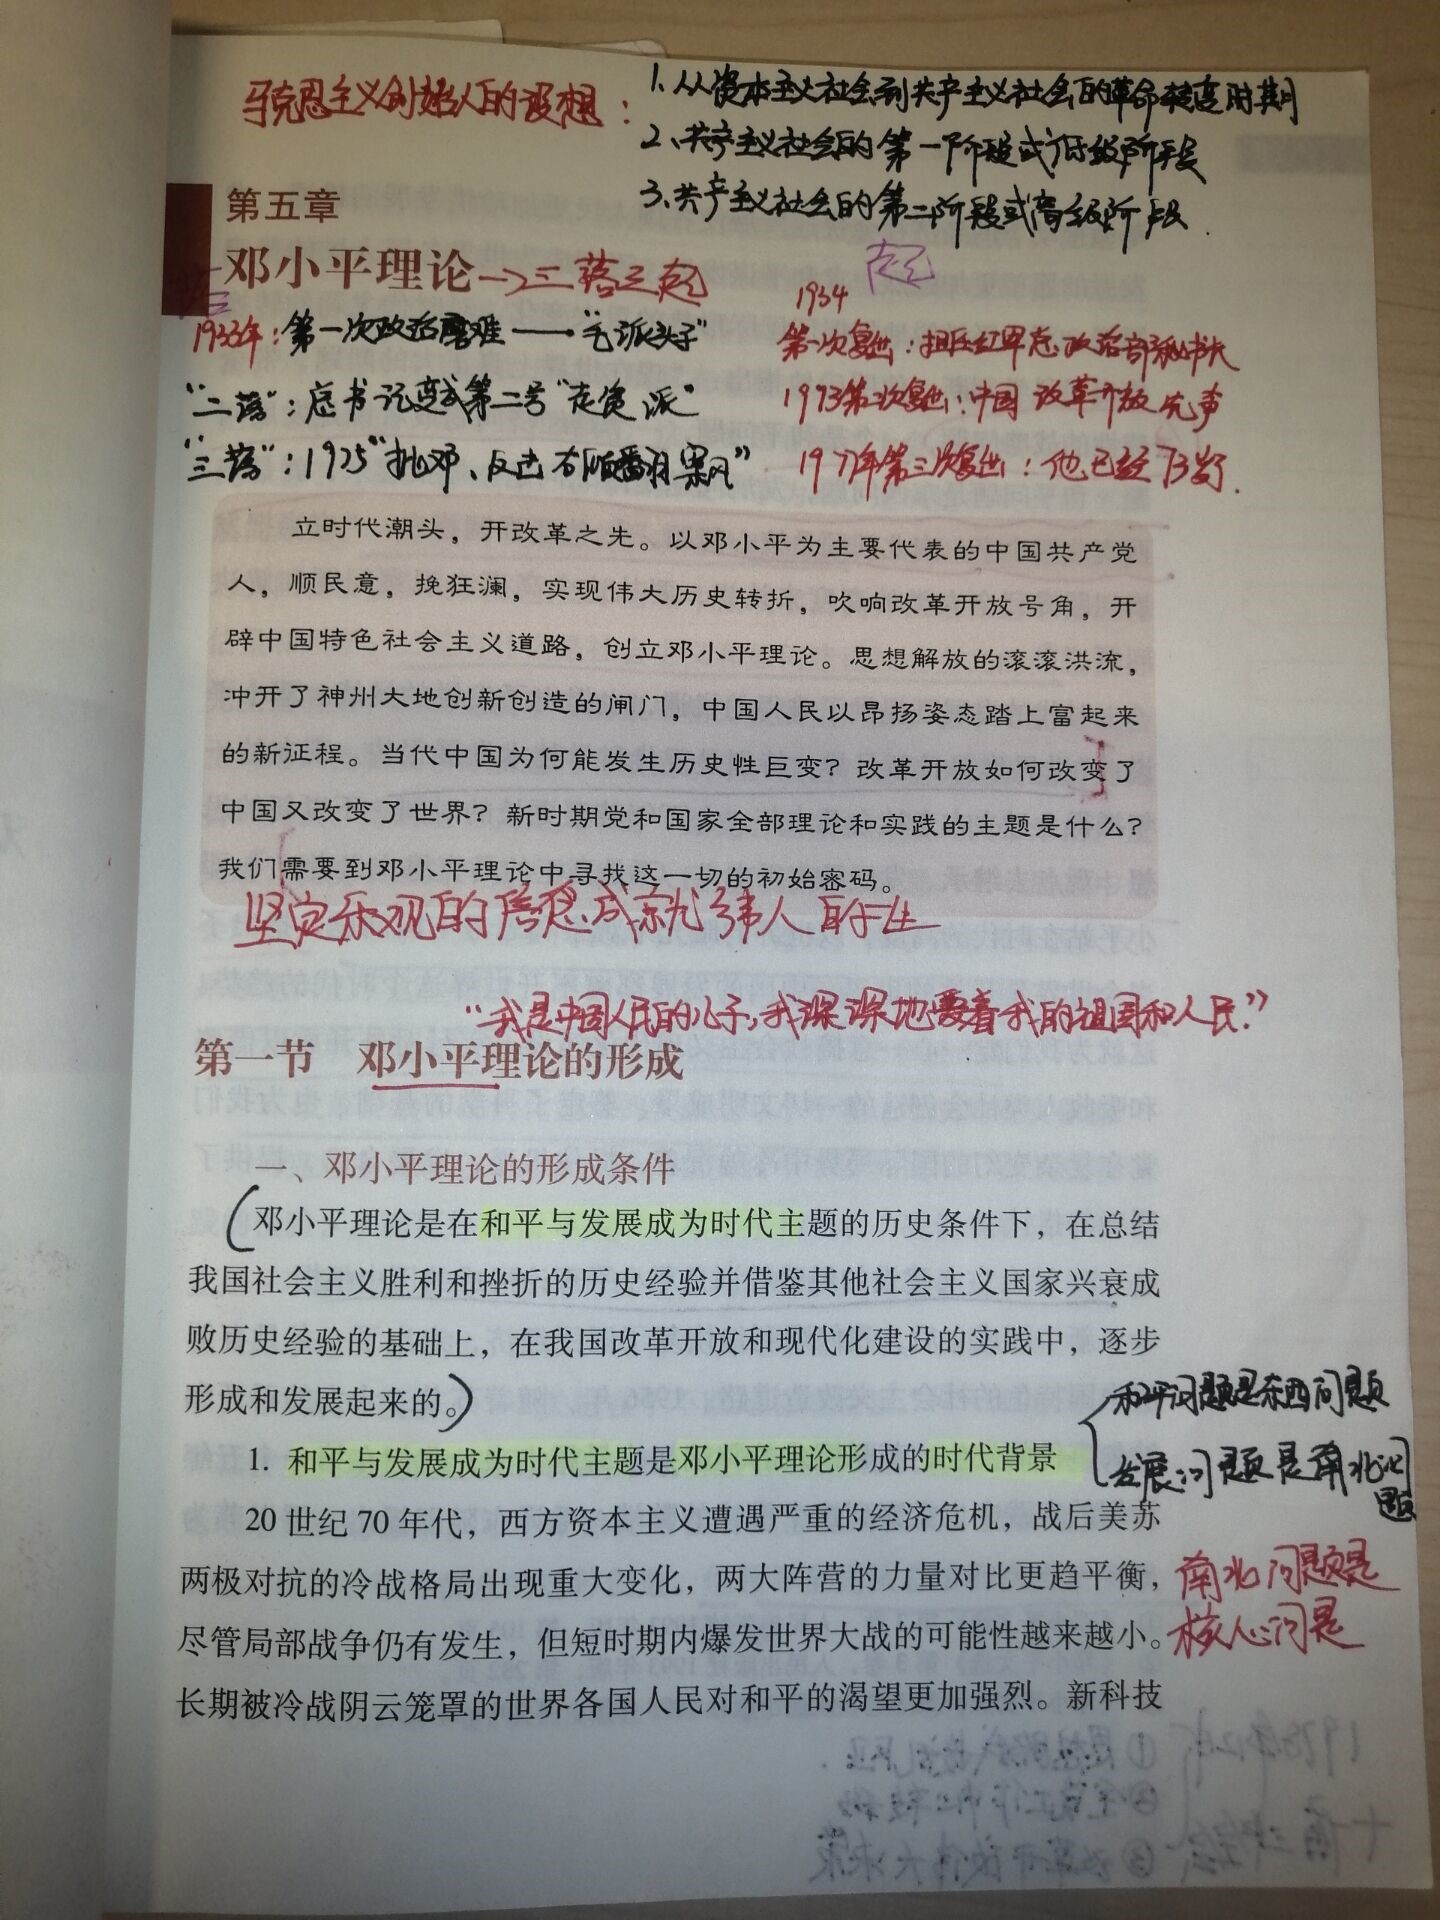 马克思主义创始人的设想：
1. 从资本主义社会到共产主义社会的革命转变时期
2、共产主义社会的第一阶段或低级阶段
3、共产主义社会的第二阶段或高级阶段
第五章
邓小平理论→三落三起
落
起
1933年：第一次政治磨难——“毛派头子”
1934
第一次复出：担任红军总政治部秘书长
“二落”：总书记变成第二号“走资派”
1973第二次复出：中国改革开放先声
“三落”：1975“批邓、反击右倾翻案风”
1977年第三次复出：他已经73岁.
立时代潮头，开改革之先。以邓小平为主要代表的中国共产党
人，顺民意，挽狂澜，实现伟大历史转折，吹响改革开放号角，开
辟中国特色社会主义道路，创立邓小平理论。思想解放的滚滚洪流，
冲开了神州大地创新创造的闸门，中国人民以昂扬姿态踏上富起来
的新征程。当代中国为何能发生历史性巨变？改革开放如何改变了
中国又改变了世界？新时期党和国家全部理论和实践的主题是什么？
我们需要到邓小平理论中寻找这一切的初始密码。
坚定乐观的信念成就伟人
“我是中国人民的儿子，我深深地爱着我的祖国和人民.”
第一节 邓小平理论的形成
一、邓小平理论的形成条件
邓小平理论是在和平与发展成为时代主题的历史条件下，在总结
我国社会主义胜利和挫折的历史经验并借鉴其他社会主义国家兴衰成
败历史经验的基础上，在我国改革开放和现代化建设的实践中，逐步
形成和发展起来的。
和平问题是东西问题
1. 和平与发展成为时代主题是邓小平理论形成的时代背景
发展问题是南北问
题
20 世纪 70 年代，西方资本主义遭遇严重的经济危机，战后美苏
两极对抗的冷战格局出现重大变化，两大阵营的力量对比更趋平衡，
南北问题是
尽管局部战争仍有发生，但短时期内爆发世界大战的可能性越来越小。
核心问是
长期被冷战阴云笼罩的世界各国人民对和平的渴望更加强烈。新科技